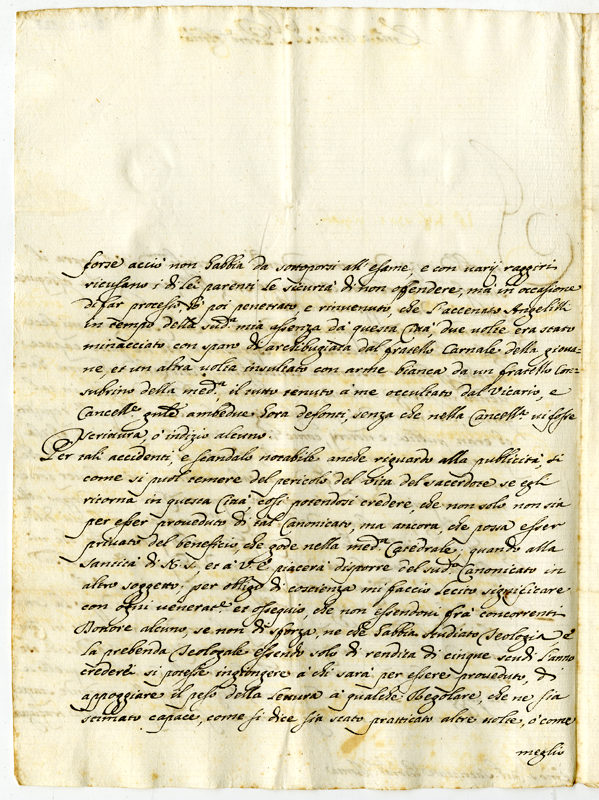 forse acciò non habbia da sottoporsi all'esame, e con varij raggiri
ricusano i di lei parenti le sicurtà di non offendere, mà in occasione
di far processi, hò poi penetrato, e rinvenuto, che l'accenato Angelilli
in tempo della sud.ª mia assenza da questa Città due volte era stato
minacciato con sparo di archibugiata dal fratello Carnale della giova=
ne et un altra volta insultato con arme bianca da un fratello Con=
subrino della med.ª il tutto tenuto à me occultato dal Vicario, e
Cancell.re ambedue hora defonti, senza che nella Cancell.ª vi fosse
scrittura, ò indizio alcuno.
Per tali accidenti, e scandalo notabile anche riguardo alla publicità, si
come si può temere del pericolo del vita del sacerdote se egli
ritorna in questa Città così potendosi credere, che non solo non sia
per esser proveduto di tal Canonicato, ma ancora, che possa esser
privato del beneficio, che gode nella med.ª Catedrale, quando alla
Santità di N. S. et à V. E. piacerà disporre del sud.º Canonicato in
altro soggetto, per obligo di coscienza mi faccio lecito significare
con ogni venerat.e et ossequio, che non essendovi frà concorrenti
Dottore alcuno, se non di sforza, ne che habbia studiato Teologia è
la prebenda Teologale essendo solo di rendita di cinque scudi l'anno
crederei si potesse ingiongere à chi sarà per essere proveduto, di
appoggiare il peso della lettura à qualche Regolare, che ne sia
stimato capace, come si dice sia stato pratticato altre volte, ò come
meglio